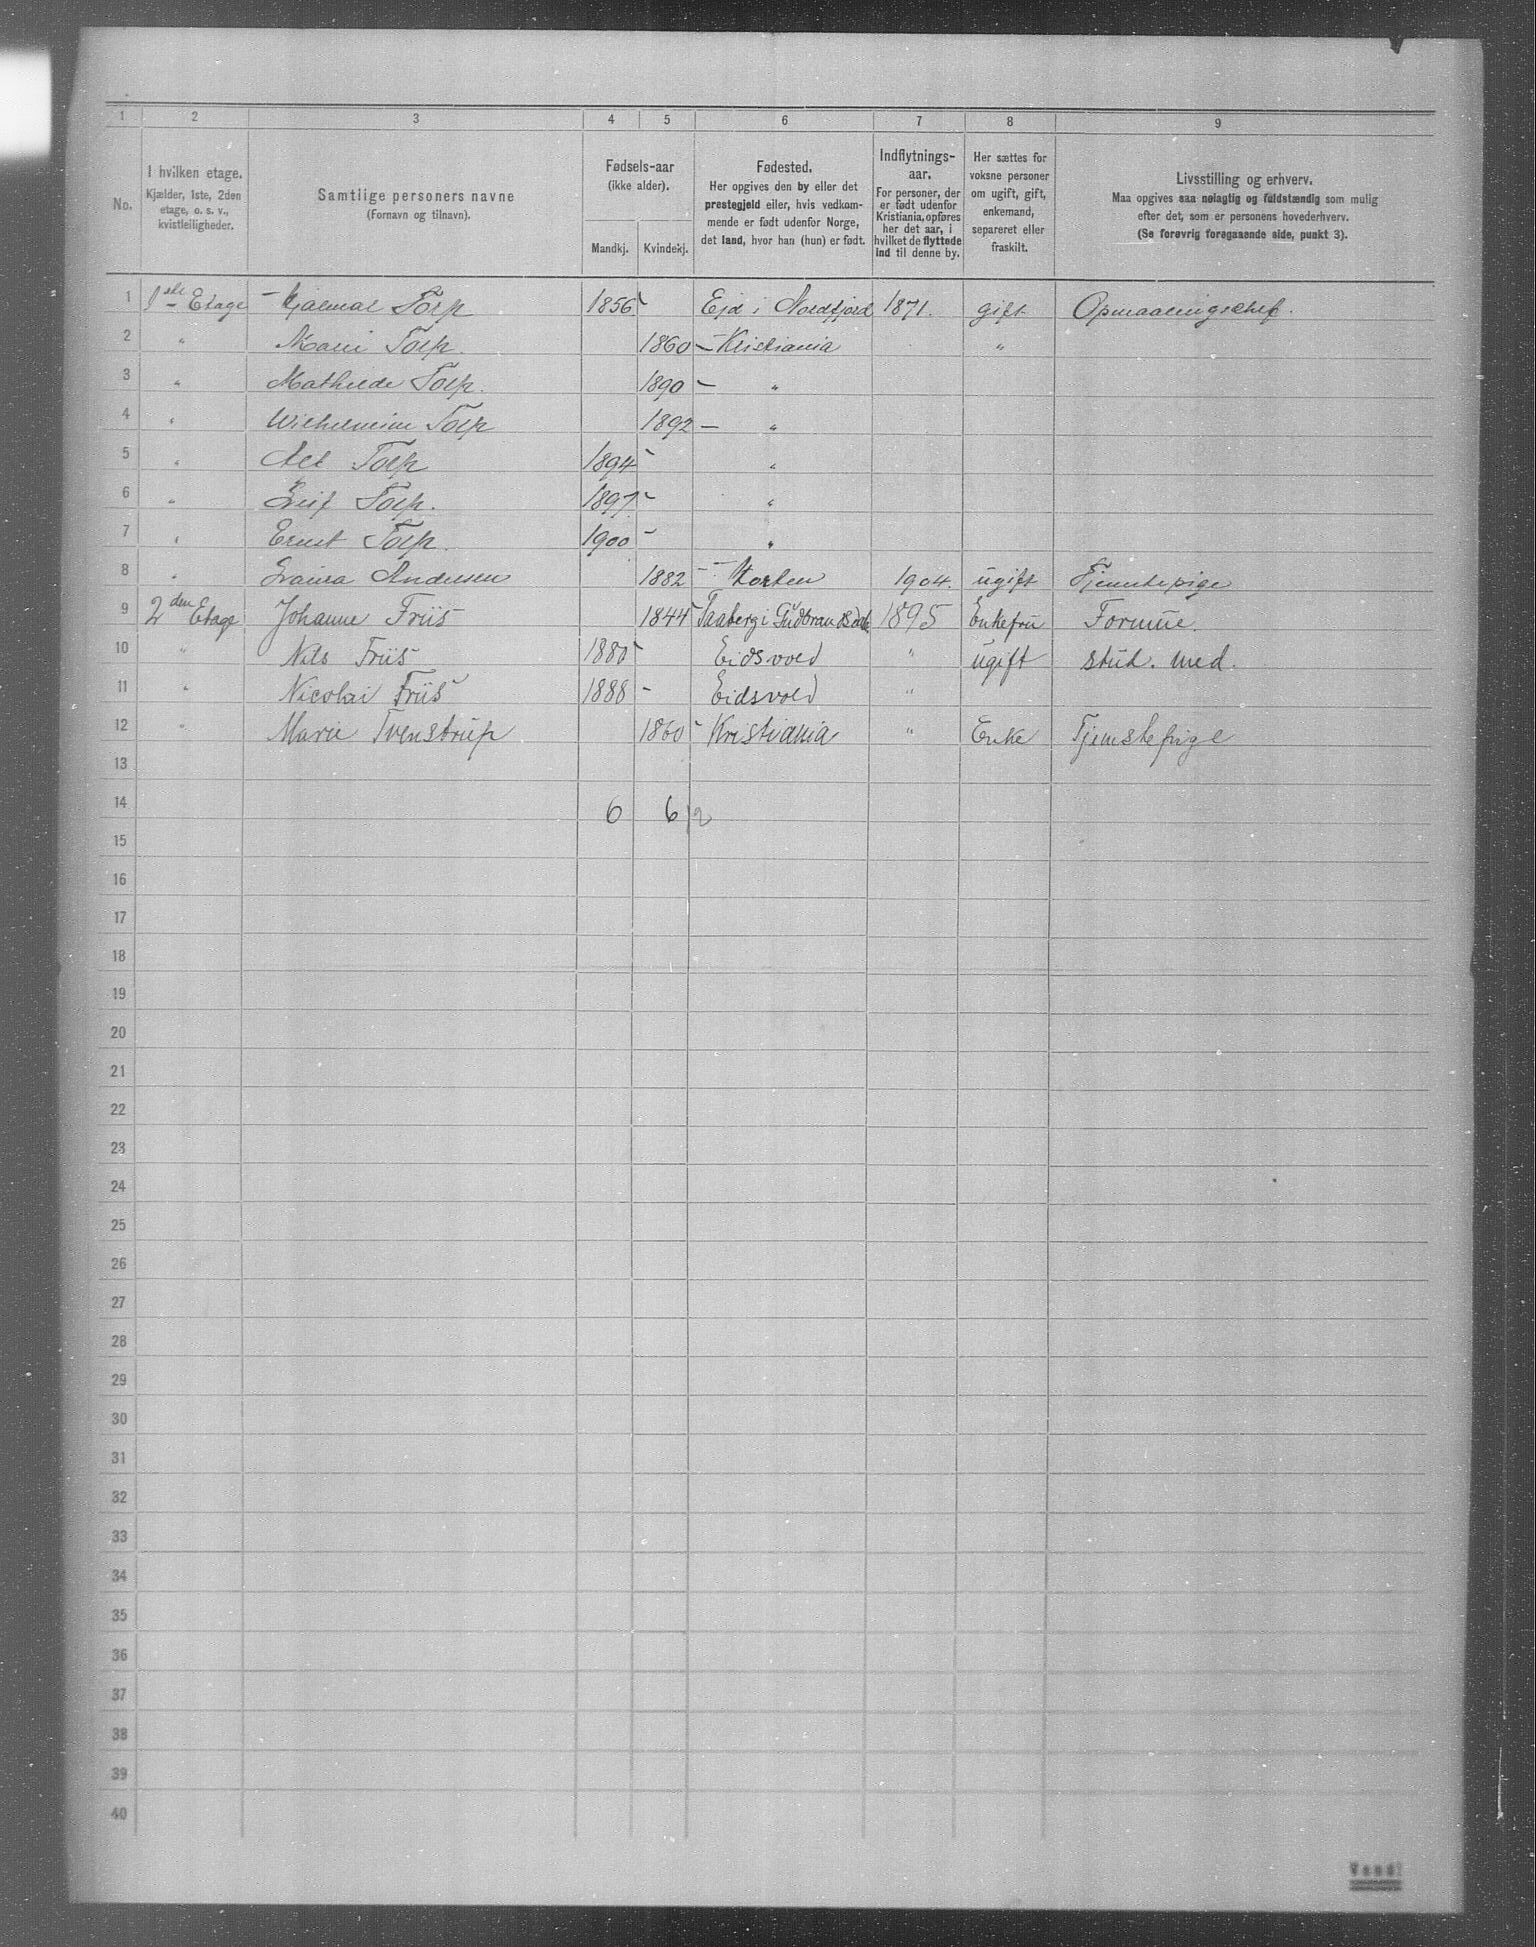 1 2 3 4 5 6 7 8 9
No.
I hvilken etage.
Kjælder, 1ste, 2den
etage, o. s. v.,
kvistleiligheder.
Samtlige personers navne
(Fornavn og tilnavn).
Fødsels-aar
(ikke alder).
Mandkj. Kvindekj.
Fødested.
Her opgives den by eller det
prestegjeld eller, hvis vedkom-
mende er født udenfor Norge,
det land, hvor han (hun) er født.
Indflytnings-
aar.
For personer, der
er født udenfor
Kristiania, opføres
her det aar, i
hvilket de flyttede
ind til denne by.
Her sættes for
voksne personer
om ugift, gift,
enkemand,
separeret eller
fraskilt.
Livsstilling og erhverv.
Maa opgives saa nøiagtig og fuldstændig som mulig
efter det, som er personens hovederhverv.
(Se forøvrig foregaaende side, punkt 3).
1 1ste Etage Hjalmar Torp 1856 Ejd i Nordfjord 1871. gift Opmaalingschef.
2 " Marie Torp. 1860 – Kristiania "
3 " Mathilde Torp. 1890 – "
4 " Wilhelmine Torp 1892 – "
5 " Alf Torp 1894 - "
6 " Leif Torp. 1897 - "
7 " Ernst Torp. 1900 - "
8 " Laura Andersen 1882 - Horten 1904. ugift Tjenestepige
9 2den Etage Johanne Friis 1844 Faaberg i Gudbrandsdal 1895 Enkefru Formue.
10 " Nils Friis 1880 Eidsvold " ugift stud. med.
11 " Nicolai Friis 1888 - Eidsvold "
12 " Marie Tvenstrup 1860 - Kristiania " Enke Tjenstepige
13
14 6 6/2
15
16
17
18
19
20
21
22
23
24
25
26
27
28
29
30
31
32
33
34
35
36
37
38
39
40
Vend!